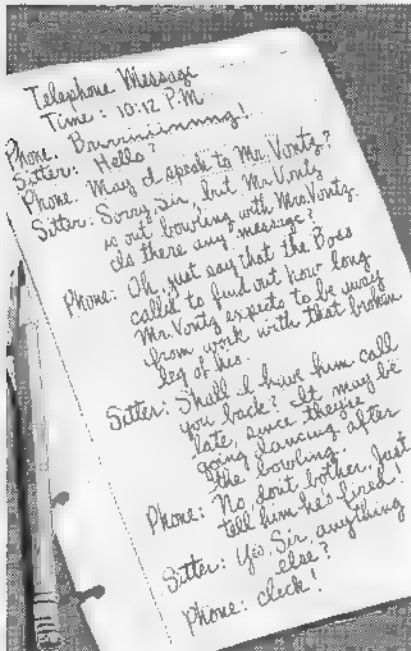 Telephone Message
Time: 10:12 P.M.
Phone. Brrrinininnng!
Sitter: Hello?
Phone: May I speak to Mr. Vontz?
Sitter: Sorry, Sir, but Mr. Vontz
is out bowling with Mrs. Vontz.
Is there any message?
Phone: Oh, just say that the Boss
called to find out how long
Mr. Vontz expects to be away
from work with that broken
leg of his.
Sitter: Shall I have him call
you back? It may be
late, since they're
going dancing after
the bowling.
Phone: No, don't bother. Just
tell him he's fired!
Sitter: Yes, Sir, anything
else?
Phone: click!